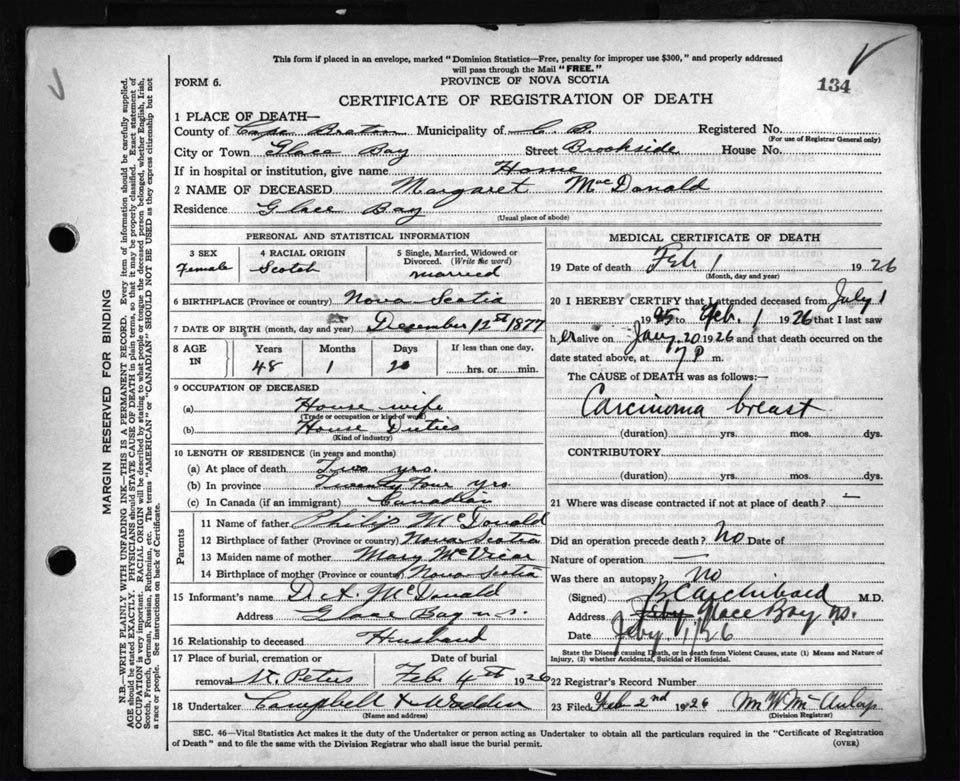 This form if placed in an envelope, marked "Dominion Statistics—Free, penalty for improper use $300," and properly addressed
will pass through the Mail "FREE."
FORM 6.
PROVINCE OF NOVA SCOTIA
134
CERTIFICATE OF REGISTRATION OF DEATH
1 PLACE OF DEATH—
County of Cape Breton Municipality of C. B. Registered No.
(For use of Registrar General only)
City or Town Glace Bay Street Brookside House No.
If in hospital or institution, give name Home
2 NAME OF DECEASED Margaret MacDonald
Residence Glace Bay
(Usual place of abode)
PERSONAL AND STATISTICAL INFORMATION
3 SEX
Female
4 RACIAL ORIGIN
Scotch
5 Single, Married, Widowed or
Divorced. (Write the word)
Married
6 BIRTHPLACE (Province or country) Nova Scotia
7 DATE OF BIRTH (month, day and year) December 12th 1877
8 AGE
IN
Years
48
Months
1
Days
20
If less than one day,
hrs. or min.
9 OCCUPATION OF DECEASED
(a) House wife
(Trade or occupation or kind of work)
(b) House Duties
(Kind of industry)
10 LENGTH OF RESIDENCE (in years and months)
(a) At place of death Two yrs.
(b) In province Twenty Four yrs.
(c) In Canada (if an immigrant) Canadian
Parents
11 Name of father Philip McDonald
12 Birthplace of father (Province or country) Nova Scotia
13 Maiden name of mother Mary McVicar
14 Birthplace of mother (Province or country) Nova Scotia
15 Informant's name D. A. McDonald
Address Glace Bay N.S.
16 Relationship to deceased Husband
17 Place of burial, cremation or
removal St. Peters
Date of burial
Feb. 4th 1926
18 Undertaker Campbell & Wadden
(Name and address)
MEDICAL CERTIFICATE OF DEATH
19 Date of death Feb 1 1926
(Month, day and year)
20 I HEREBY CERTIFY that I attended deceased from July 1
1925 to Feb. 1 1926 that I last saw
her alive on Jany. 20 1926 and that death occurred on the
date stated above, at 7 P m.
The CAUSE of DEATH was as follows:—
Carcinoma breast
(duration) yrs. mos. dys.
CONTRIBUTORY
(duration) yrs. mos. dys.
21 Where was disease contracted if not at place of death? —
Did an operation precede death? No Date of
Nature of operation —
Was there an autopsy? No
(Signed) Archibald M.D.
Address Glace Bay
Date Feby. 1/26
State the Disease causing Death, or in death from Violent Causes, state (1) Means and Nature of
Injury, (2) whether Accidental, Suicidal or Homicidal.
22 Registrar's Record Number
23 Filed Feb 2nd 1926
(Division Registrar)
SEC. 46—Vital Statistics Act makes it the duty of the Undertaker or person acting as Undertaker to obtain all the particulars required in the "Certificate of Registration
of Death" and to file the same with the Division Registrar who shall issue the burial permit.
(OVER)
MARGIN RESERVED FOR BINDING
N.B.—WRITE PLAINLY WITH UNFADING INK—THIS IS A PERMANENT RECORD. Every item of information should be carefully supplied.
AGE should be stated EXACTLY. PHYSICIANS should STATE CAUSE OF DEATH in plain terms, so that it may be properly classified. Exact statement of
OCCUPATION is very important. RACIAL ORIGIN will be described by stating to what people or tongue the deceased person belonged, whether English, Irish,
Scotch, French, German, Russian, Ruthenian, etc. The terms "AMERICAN" or "CANADIAN" SHOULD NOT BE USED as they express citizenship but not
a race or people. See instructions on back of Certificate.